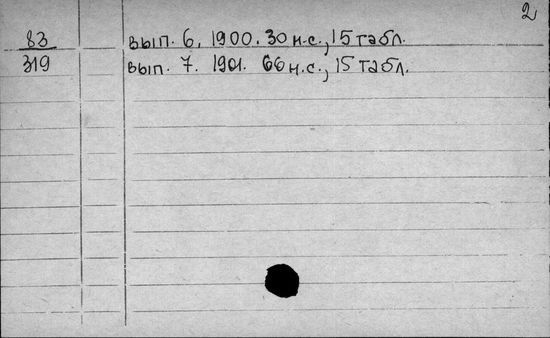 2
83 вып. 6, 1900. 30 н.с., 15 табл.
319 вып. 7. 1901. 66 н.с., 15 табл.